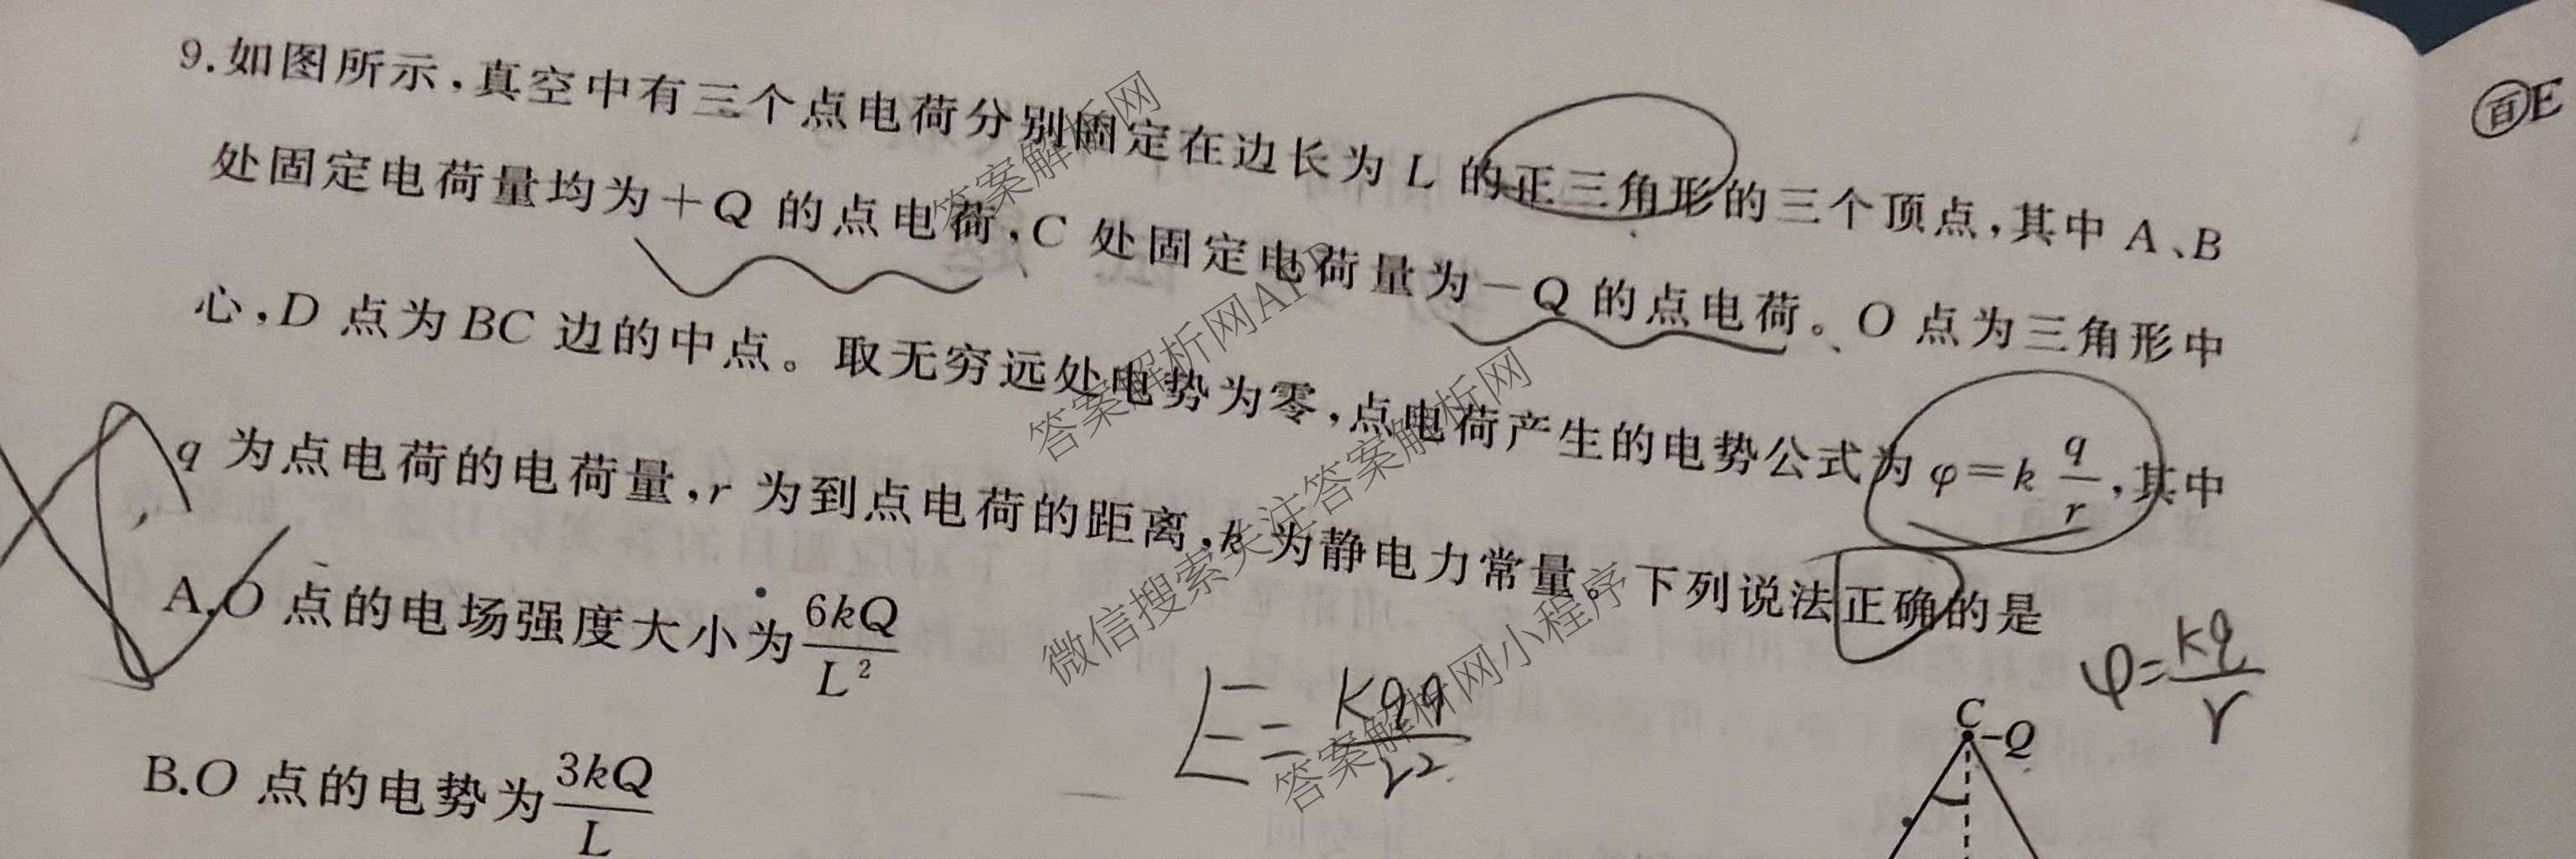 9.如图所示,真空中有三个点电荷分别固定在边长为 L 的正三角形的三个顶点,其中 A、B
处固定电荷量均为+Q 的点电荷,C 处固定电荷量为-Q 的点电荷。O 点为三角形中
心,D 点为 BC 边的中点。取无穷远处电势为零,点电荷产生的电势公式为 φ=k q/r,其中
q 为点电荷的电荷量,r 为到点电荷的距离,k 为静电力常量。下列说法正确的是
A.O 点的电场强度大小为 6kQ/L²
B.O 点的电势为 3kQ/L
φ=kq/r
C
-Q
E
答案解析网
答案解析网APP
微信搜索关注答案解析网
答案解析网小程序